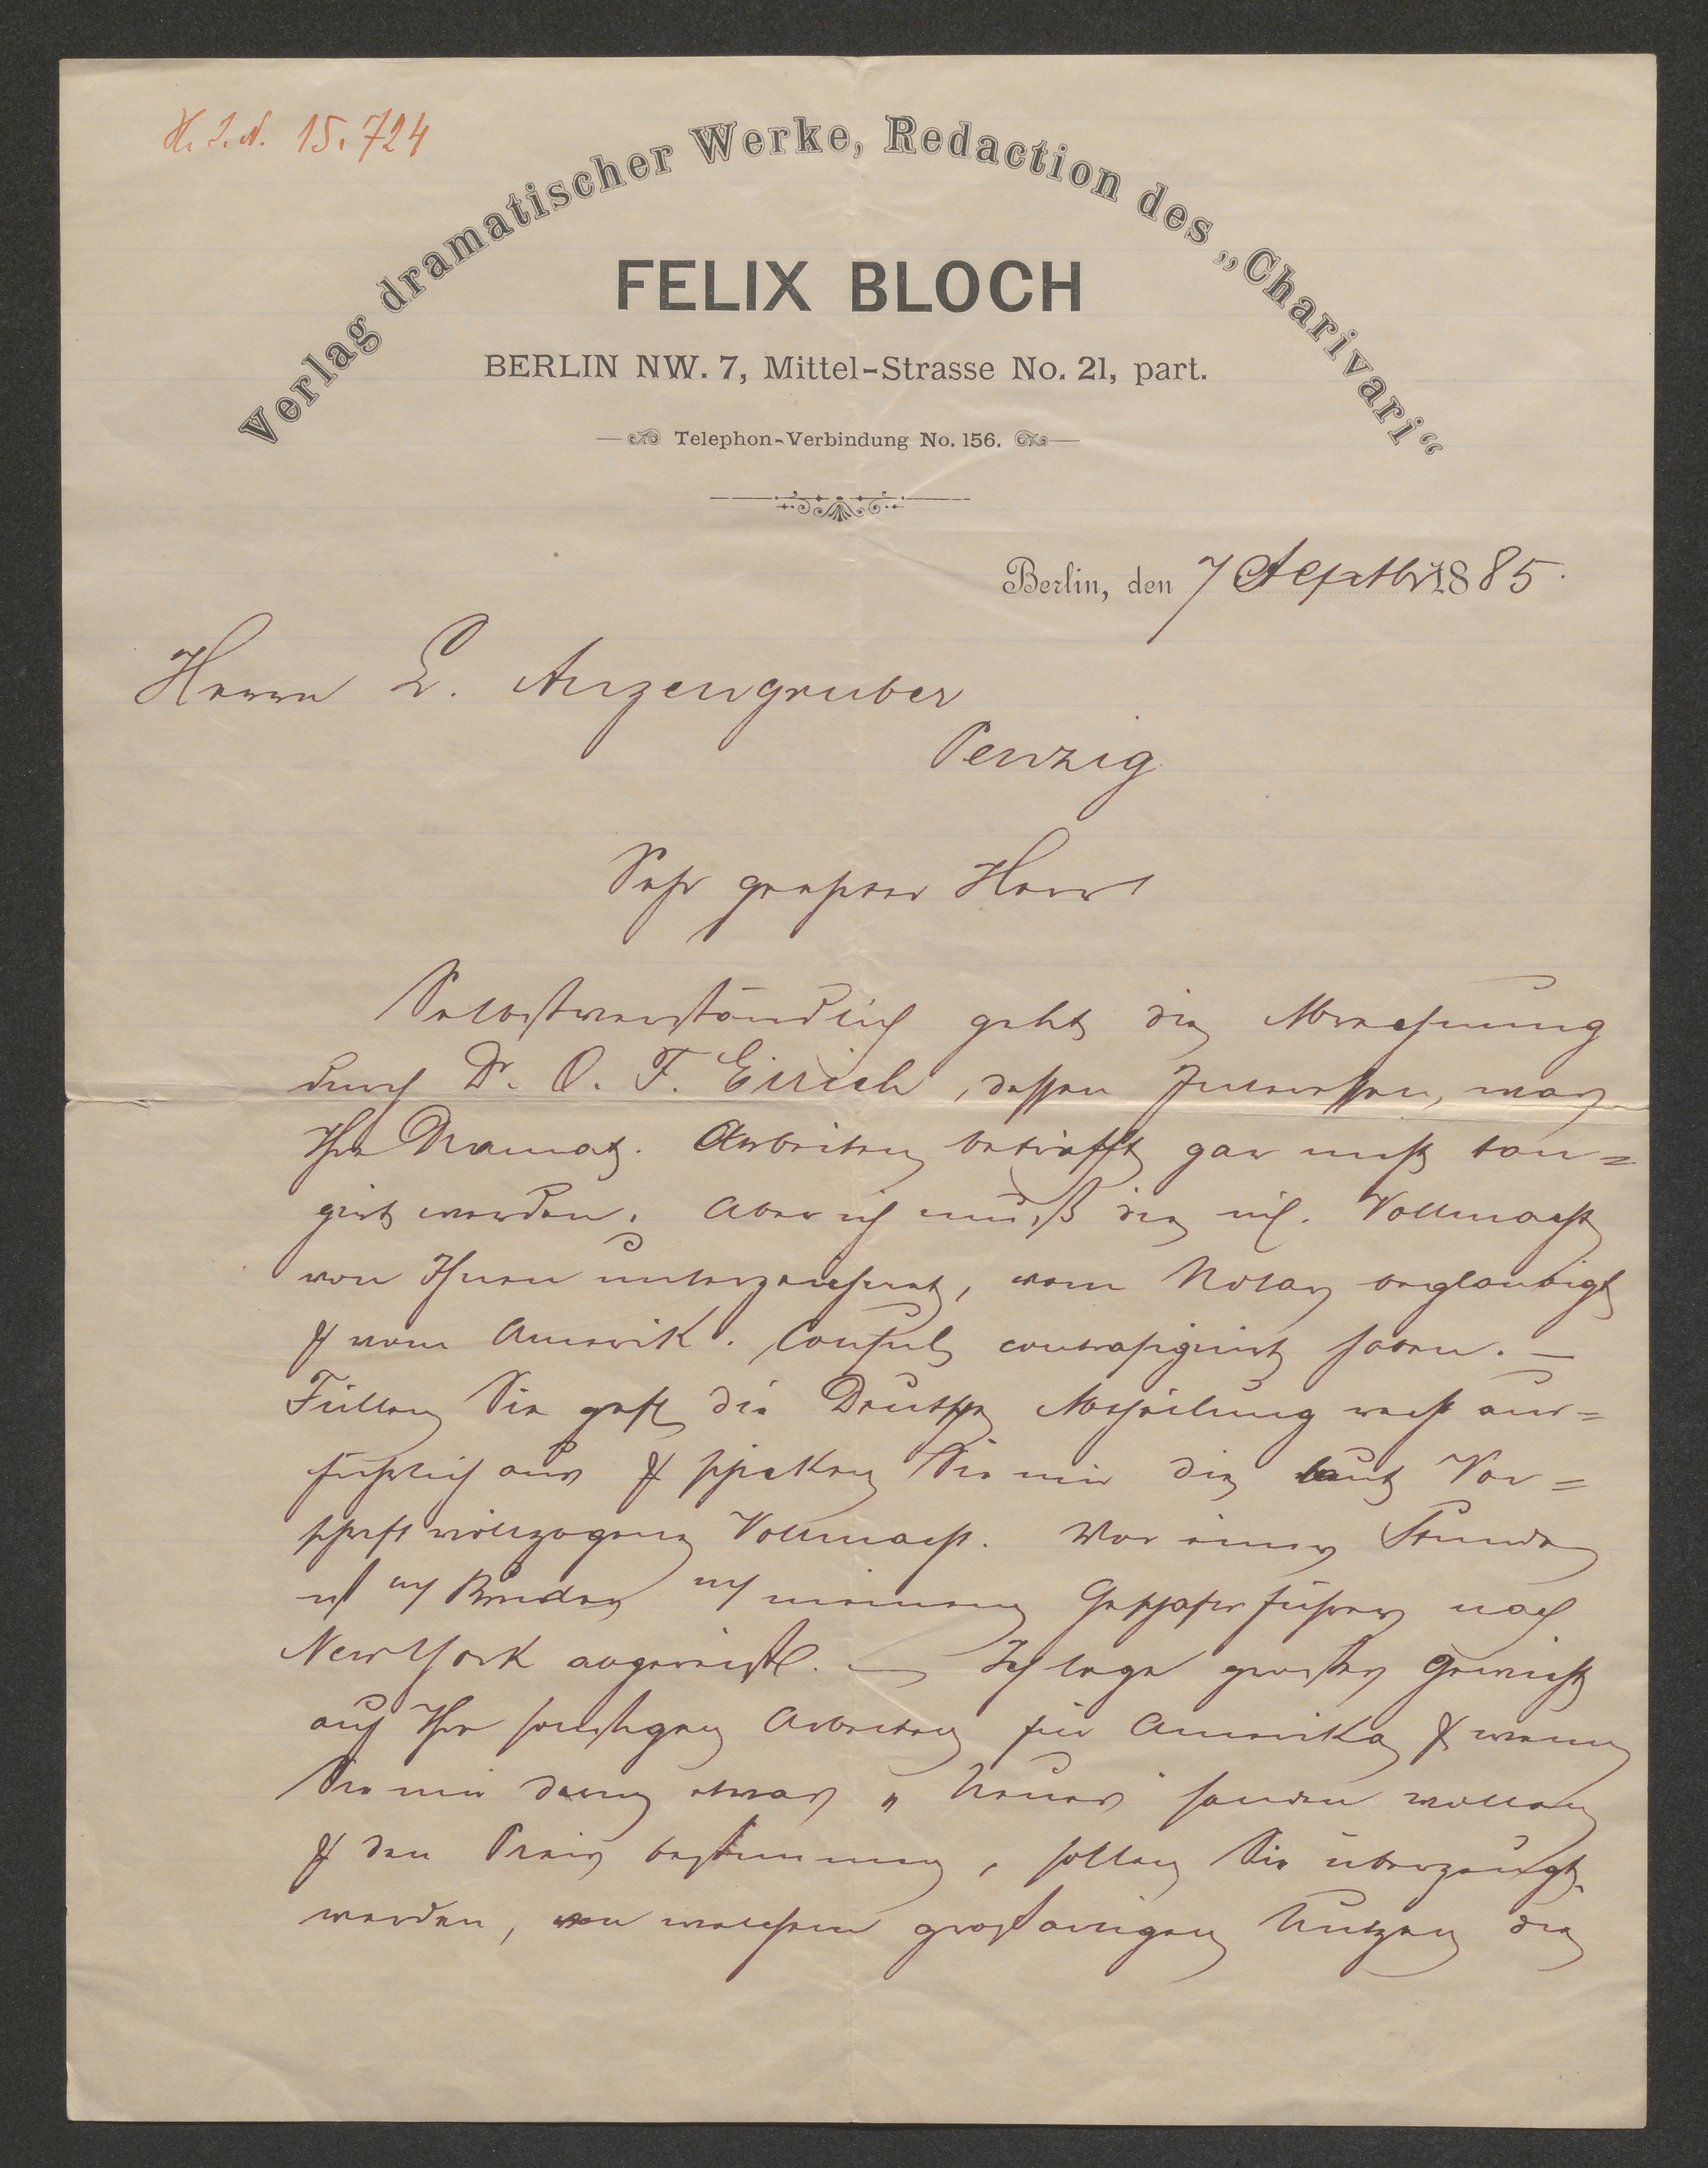 H. I. N. 15.724
Verlag dramatischer Werke, Redaction des „Charivari“
FELIX BLOCH
BERLIN NW. 7, Mittel-Strasse No. 21, part.
Telephon-Verbindung No. 156.
Berlin, den 7 Septbr 1885.
Herrn L. Anzengruber
Penzig
Sehr geehrter Herr!
Selbstverständlich geht die Abrechnung
durch Dr. O. F. Eirich, dessen Interessen, was
Ihre Dramat. Arbeiten betrifft gar nicht tan=
girt werden. Aber ich muß die Vollmacht
von Ihnen unterzeichnet, vom Notar beglaubigt
& vom Amerik. Consul contrasignirt haben. —
Füllen Sie gefl die Deutsche Abtheilung recht aus=
führlich aus & schicken Sie mir die laut Vor=
schrift vollzogene Vollmacht. Vor einer Stunde
ist Bruder meinem Geschäftsführer nach
New York abgereist. — Ich lege großes Gewicht
auf Ihre sonstigen Arbeiten für Amerika & wenn
Sie mir dann etwas „Neues" senden wollen
& den Preis bestimmen, sollen Sie überzeugt
werden, von welchem großartigen Nutzen die